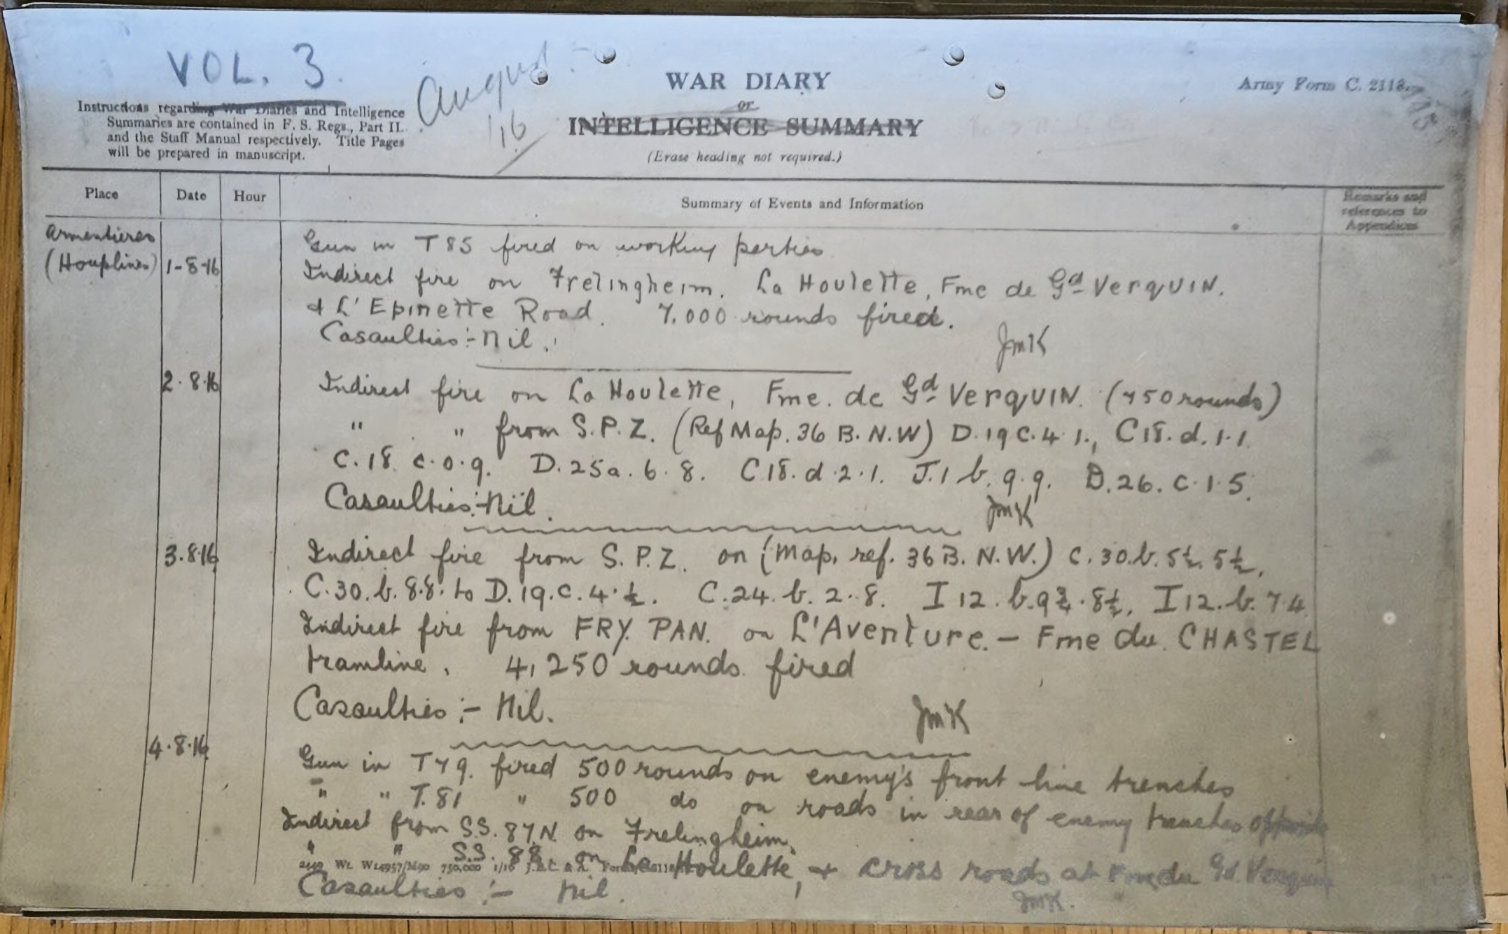 VOL. 3.
August
/16
WAR DIARY
or
INTELLIGENCE SUMMARY
(Erase heading not required.)
Army Form C. 2118.
Instructions regarding War Diaries and Intelligence
Summaries are contained in F. S. Regs., Part II.
and the Staff Manual respectively. Title Pages
will be prepared in manuscript.
Place Date Hour Summary of Events and Information Remarks and
references to
Appendices
Armentieres
(Houplines) 1-8-16
Gun in T85 fired on working parties
Indirect fire on Frelingheim. La Houlette, Fme de Gd Verquin.
& L'Epinette Road. 7,000 rounds fired.
Casaulties:- nil.
JMK
2.8.16 Indirect fire on La Houlette, Fme. de Gd Verquin. (750 rounds)
" " from S.P.Z. (Ref Map. 36 B.N.W) D.19 C.4 1., C18.d.1.1.
C.18. c.0.9. D.25a.6.8. C18.d.2.1. J.1 b.9.9. D.26.c.1.5.
Casaulties:- Nil.
JMK
3.8.16 Indirect fire from S.P.Z. on (Map. ref. 36 B. N.W.) C.30.b.5½.5½.
C.30.b.8.8. to D.19.c.4.½. C.24.b.2.8. I 12.b.9¾.8½. I 12.b.7.4
Indirect fire from FRY. PAN. on L'Aventure. - Fme du. CHASTEL
tramline. 4,250 rounds fired
Casaulties:- Nil.
JMK
4.8.16 Gun in T79. fired 500 rounds on enemy's front line trenches
" " T.81 " 500 do on roads in rear of enemy trenches opposite
Indirect from S.S. 87N. on Frelingheim.
" " S.S. 88. on La Houlette, & cross roads at Fme du Gd Verquin
Casaulties:- Nil.
JMK.